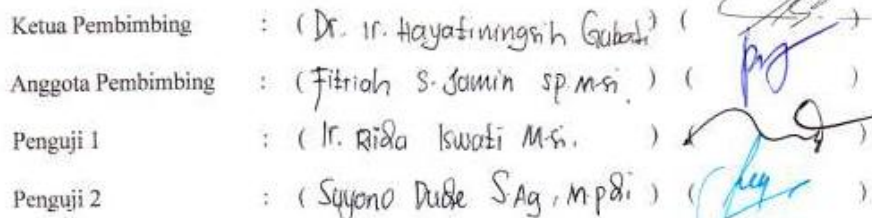 Ketua Pembimbing : ( Dr. Ir. Hayatiningsih Gubali ) ( )
Anggota Pembimbing : ( Fitriah S. Jamin SP. M.Si ) ( )
Penguji 1 : ( Ir. Rida Iswati M.Si. ) ( )
Penguji 2 : ( Suyono Dude S.Ag, M.Pdi ) ( )